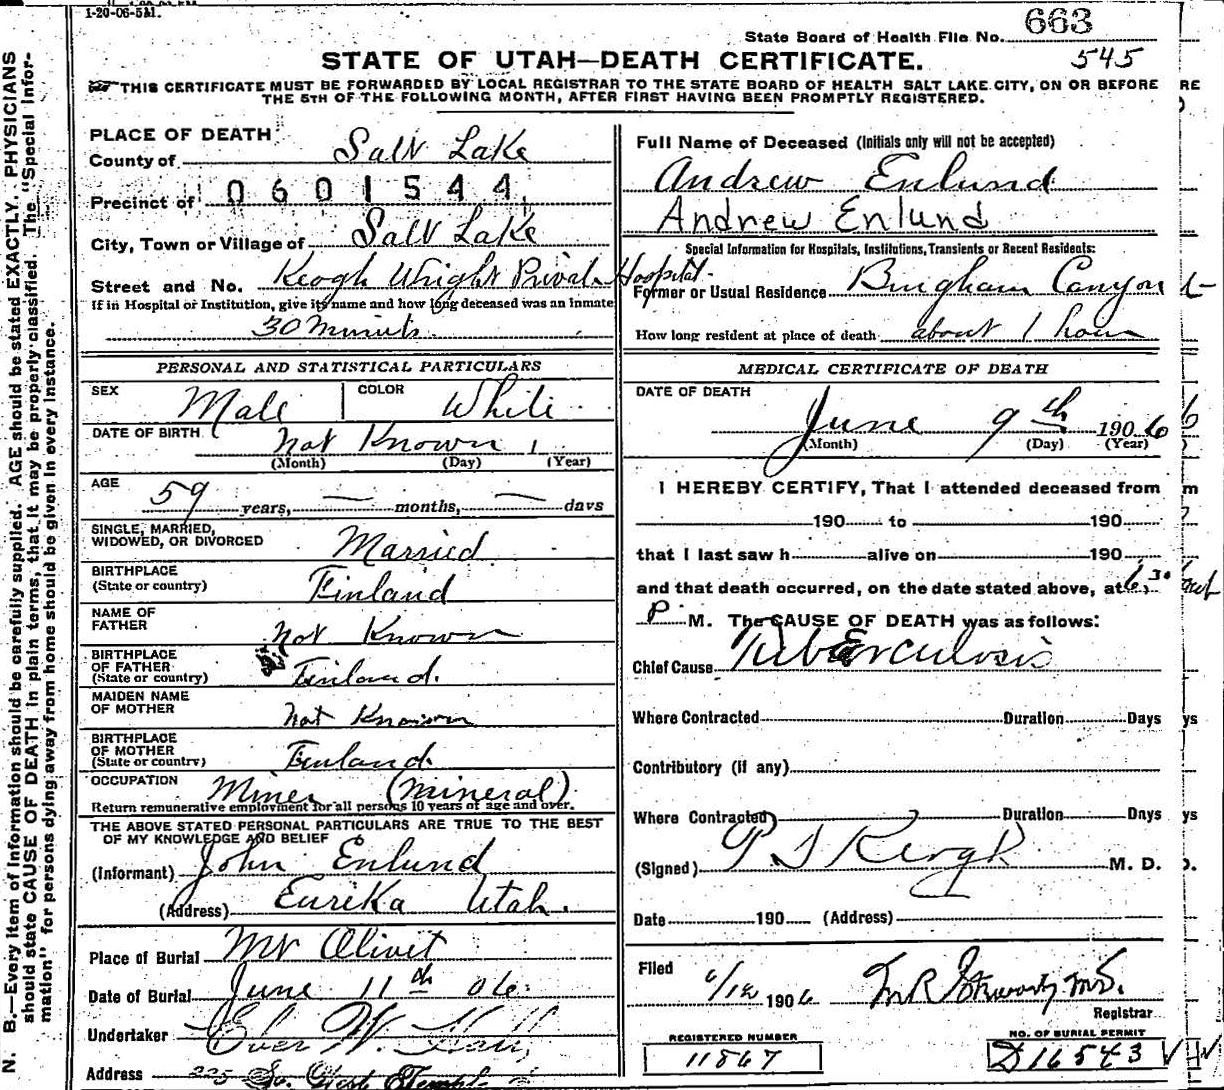 1-20-06-5M.
State Board of Health File No. 663
545
STATE OF UTAH—DEATH CERTIFICATE.
THIS CERTIFICATE MUST BE FORWARDED BY LOCAL REGISTRAR TO THE STATE BOARD OF HEALTH SALT LAKE CITY, ON OR BEFORE
THE 5TH OF THE FOLLOWING MONTH, AFTER FIRST HAVING BEEN PROMPTLY REGISTERED.
N. B.—Every item of information should be carefully supplied. AGE should be stated EXACTLY. PHYSICIANS
should state CAUSE OF DEATH in plain terms, that it may be properly classified. The "Special Infor-
mation" for persons dying away from home should be given in every instance.
PLACE OF DEATH
County of Salt Lake
Precinct of 0601544
City, Town or Village of Salt Lake
Street and No. Keogh Wright Private Hospital
If in Hospital or Institution, give its name and how long deceased was an inmate
30 Minuts
PERSONAL AND STATISTICAL PARTICULARS
SEX Male COLOR White
DATE OF BIRTH Not Known 1
(Month) (Day) (Year)
AGE
59 years, — months, — days
SINGLE, MARRIED,
WIDOWED, OR DIVORCED Married
BIRTHPLACE
(State or country) Finland
NAME OF
FATHER Not Known
BIRTHPLACE
OF FATHER
(State or country) Finland.
MAIDEN NAME
OF MOTHER Not Known
BIRTHPLACE
OF MOTHER
(State or country) Finland.
OCCUPATION Miner (Mineral)
Return remunerative employment for all persons 10 years of age and over.
THE ABOVE STATED PERSONAL PARTICULARS ARE TRUE TO THE BEST
OF MY KNOWLEDGE AND BELIEF
(Informant) John Enlund
(Address) Eurika Utah.
Place of Burial Mt Olivet
Date of Burial June 11th 06.
Undertaker Eber W. Hall
Address 225 So. West Temple
Full Name of Deceased (Initials only will not be accepted)
Andrew Enlund
Andrew Enlund
Special Information for Hospitals, Institutions, Transients or Recent Residents:
Former or Usual Residence Bingham Canyon
How long resident at place of death about 1 hour
MEDICAL CERTIFICATE OF DEATH
DATE OF DEATH
June 9th 1906
(Month) (Day) (Year)
I HEREBY CERTIFY, That I attended deceased from
190 to 190
that I last saw h alive on 190
and that death occurred, on the date stated above, at 6,30
P M. The CAUSE OF DEATH was as follows:
Chief Cause Tuberculosis
Where Contracted Duration Days
Contributory (if any)
Where Contracted Duration Days
(Signed) P S Keogh M. D.
Date 190 (Address)
Filed 6/12 1906 M.D.
Registrar
REGISTERED NUMBER
11867
NO. OF BURIAL PERMIT
D16543